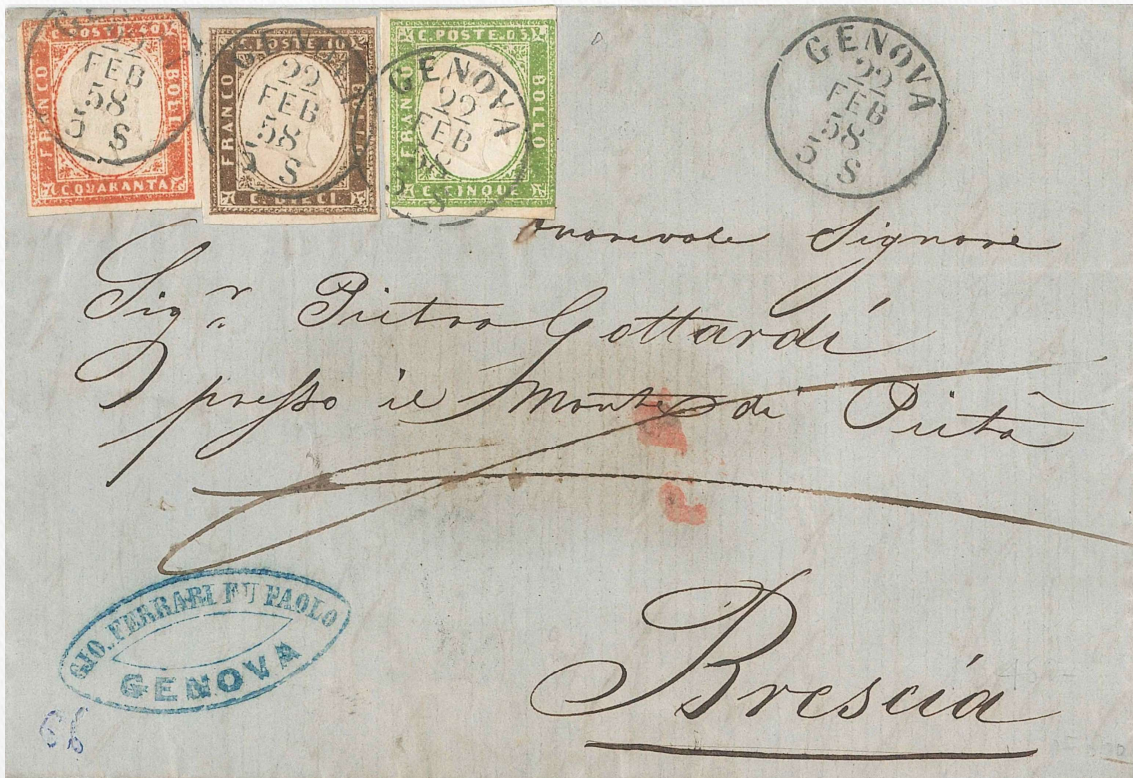 C. POSTE. 40
FRANCO
BOLLO
C. QUARANTA
22
FEB
58
5 S
C. POSTE. 10
FRANCO
BOLLO
C. DIECI.
GENOVA
22
FEB
58
5 S
C. POSTE. 05
FRANCO
BOLLO
C. CINQUE
GENOVA
22
FEB
58
5 S
GENOVA
22
FEB
58
5 S
Onorevole Signore
Sigr Pietro Gottardi
presso il Monte di Pietà
Brescia
GIO. FERRARI FU PAOLO
GENOVA